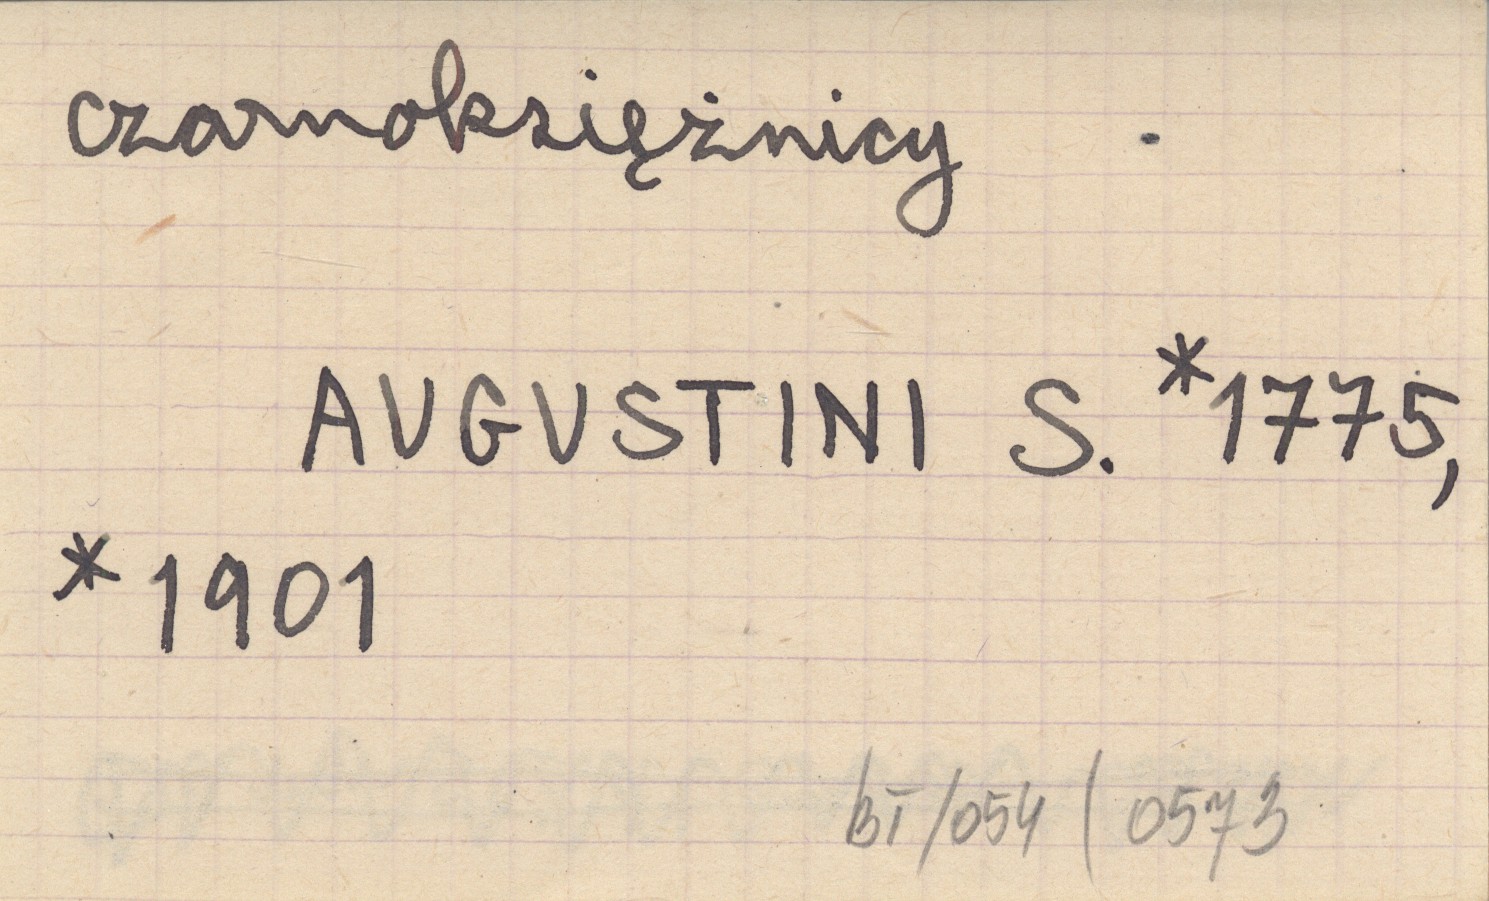 czarnoksiężnicy
AUGUSTINI S. *1775,
*1901
BI/054 / 0573